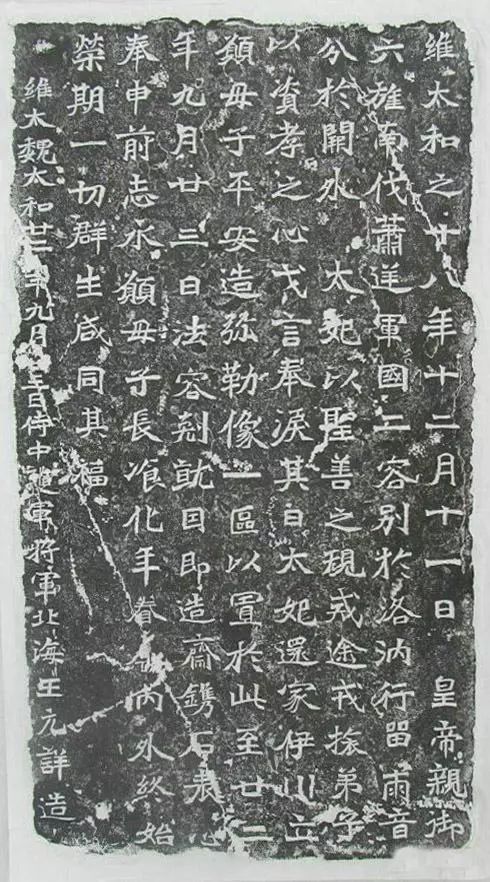 維太和之十八年十二月十一日 皇帝親御
六旌南伐蕭逆軍國二容別於洛汭行留兩音
分於闕外 太妃以聖善之規戒途戎旅弟子
以資孝之心戈言奉淚其日太妃還家伊川立
願母子平安造弥勒像一區以置於此至廿二
年九月廿三日法容剋就因即造齋鐫石表心
奉申前志永願母子長飡化年眷屬内外終始
榮期一切群生咸同其福
維大魏太和廿二年九月廿三日侍中護軍將軍北海王元詳造